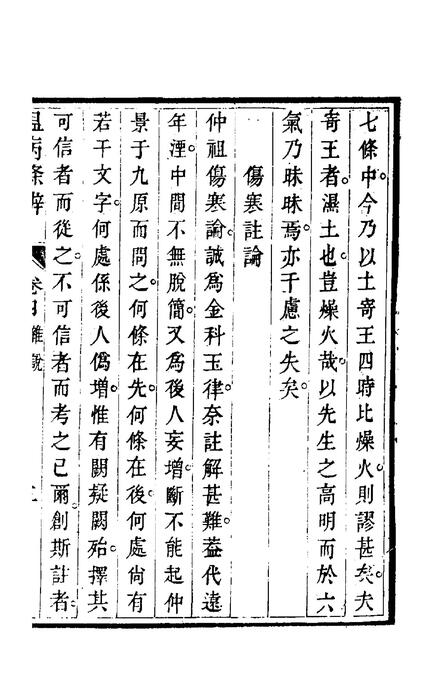 七條中。今乃以土寄王四時比燥火。則謬甚矣。夫
寄王者。濕土也。豈燥火哉。以先生之高明而於六
氣乃昧昧焉。亦千慮之失矣。
傷寒註論
仲祖傷寒論。誠爲金科玉律。奈註解甚難。蓋代遠
年湮。中間不無脫簡。又爲後人妄增。斷不能起仲
景于九原而問之。何條在先。何條在後。何處尚有
若干文字。何處係後人僞增。惟有闕疑闕殆。擇其
可信者而從之。不可信者而考之已爾。創斯註者。
溫病條辨 卷四雜說